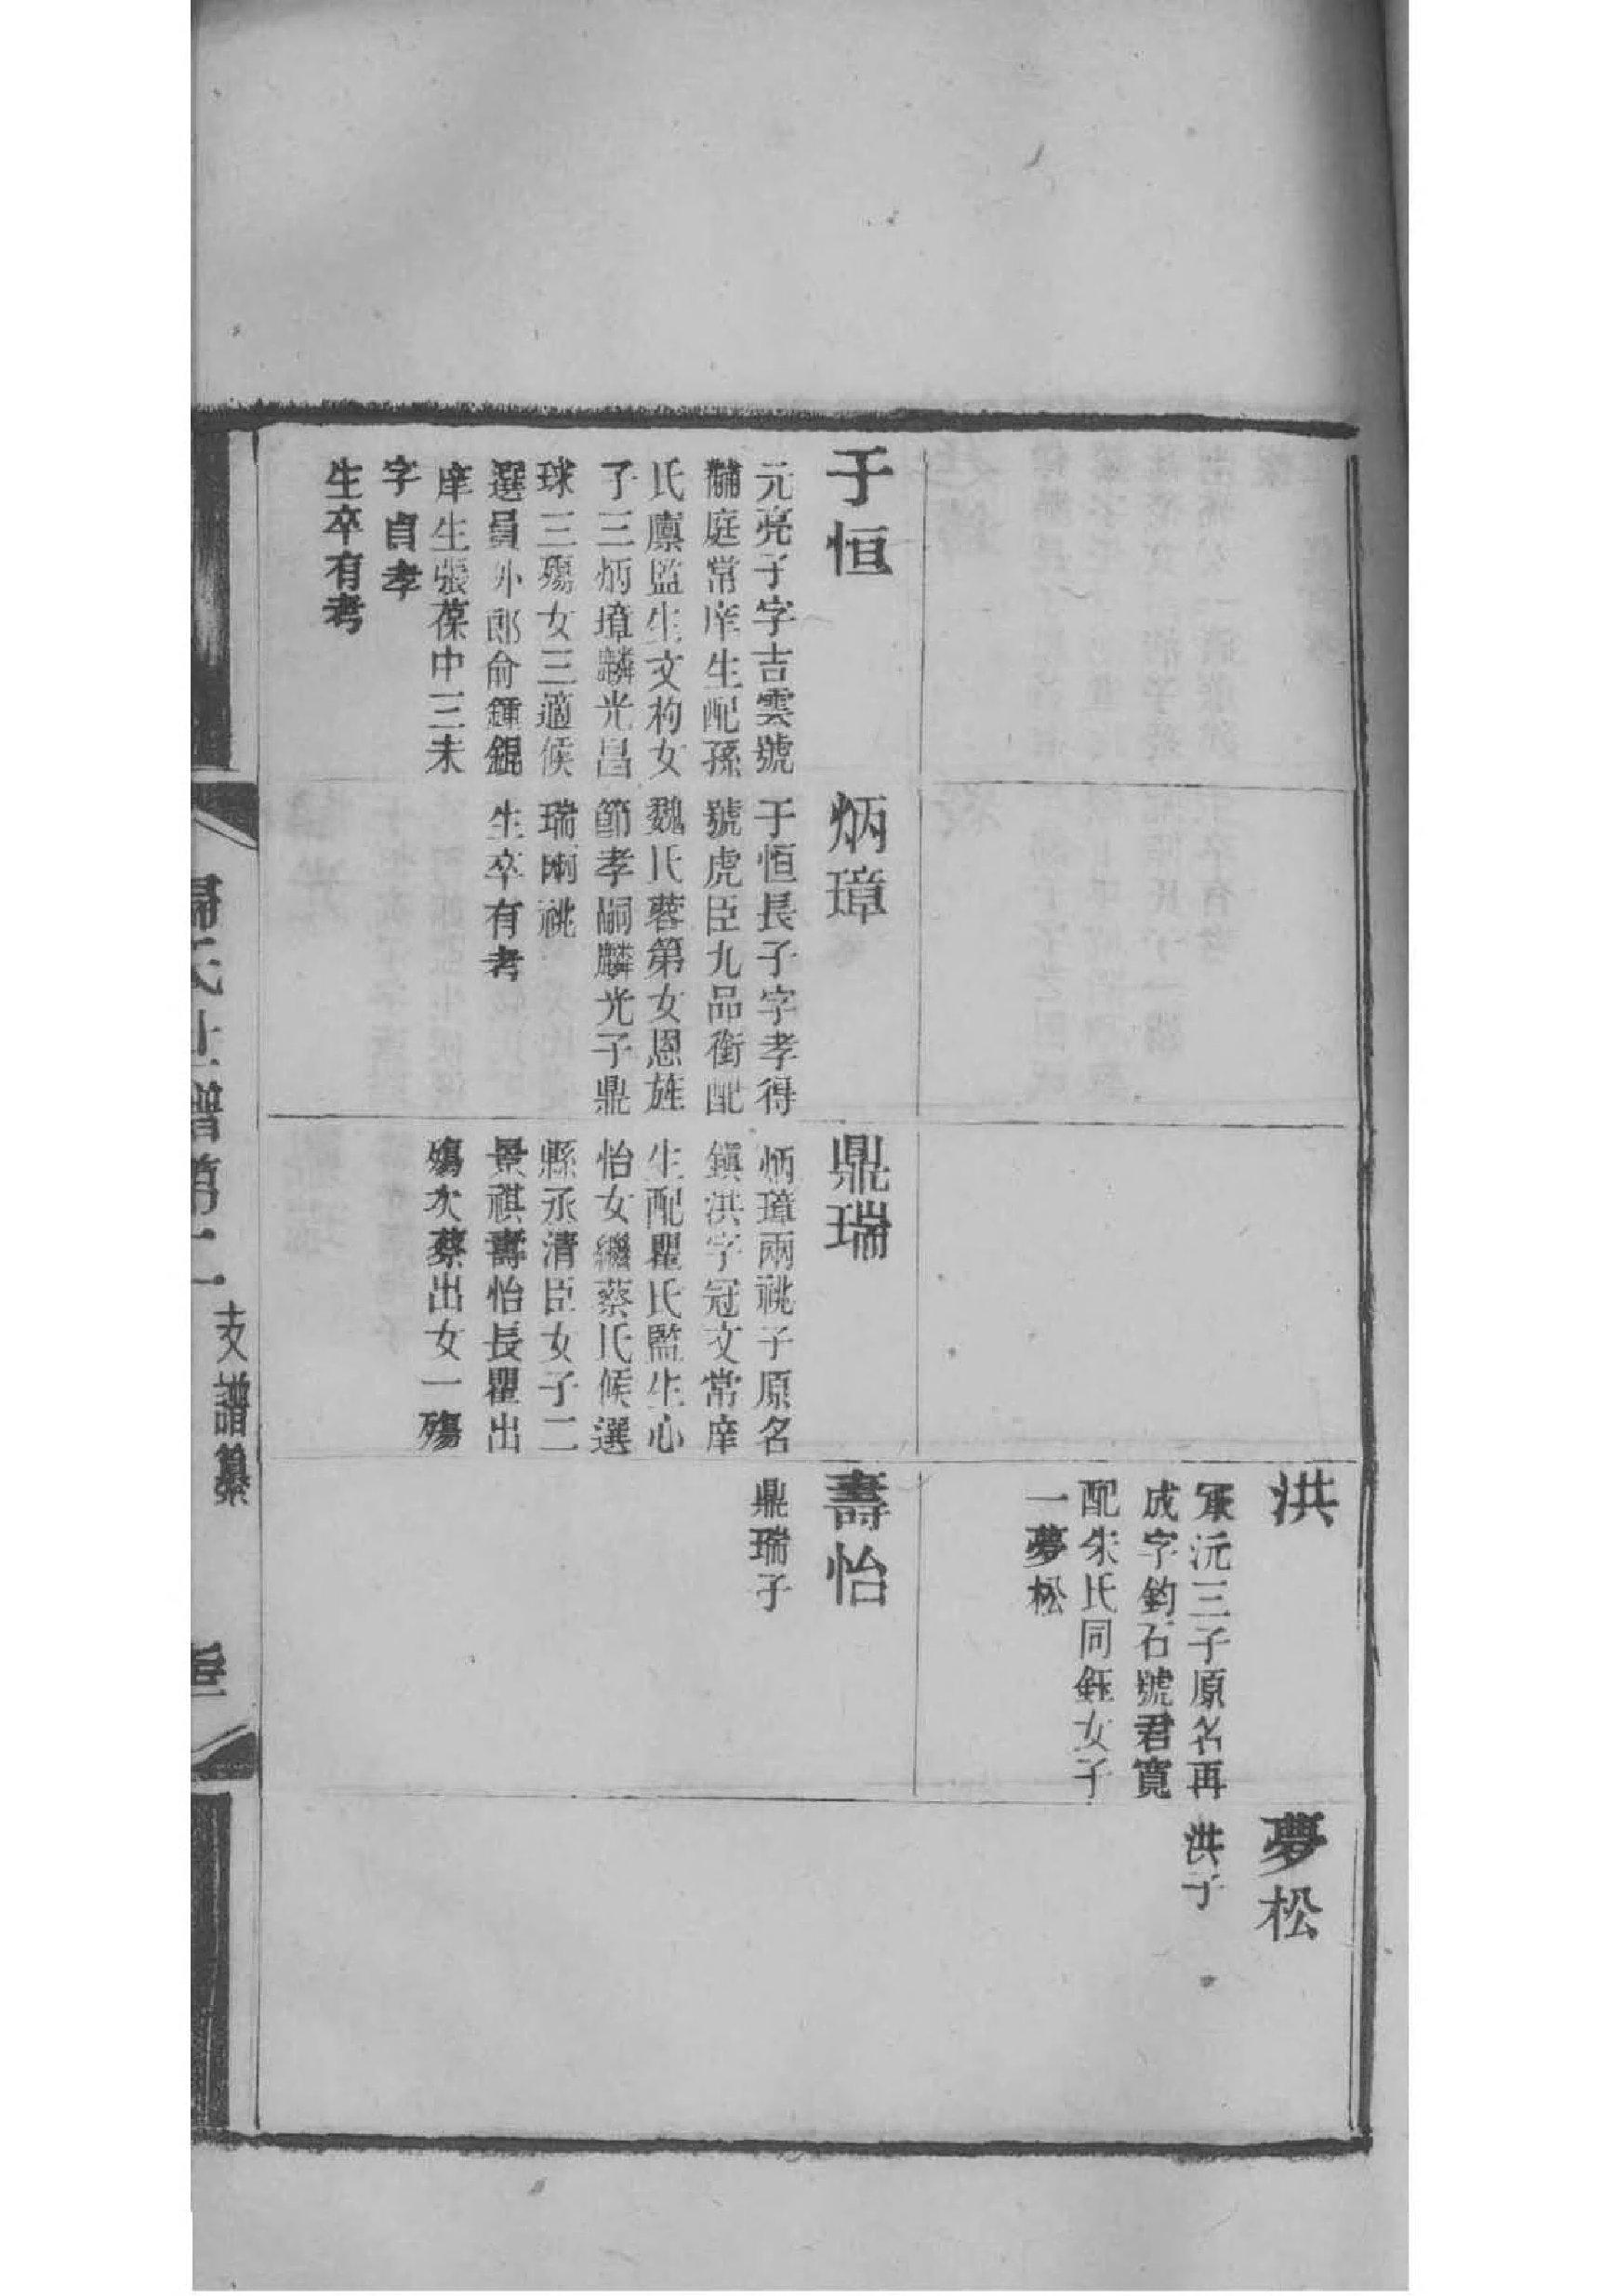 洪
軍沅三子原名再
成字鈞石號君寬
配朱氏同鈺女子
一夢松
夢松
洪子
于恒
元亮子字吉雲號
黼庭常庠生配孫
氏廩監生文杓女
子三炳璋麟光昌
球三殤女三適候
選員外郎俞鍾錕
庠生張葆中三未
字貞孝
生卒有考
炳璋
于恒長子字孝得
號虎臣九品銜配
魏氏蓉第女恩旌
節孝嗣麟光子鼎
瑞兩祧
生卒有考
鼎瑞
炳璋兩祧子原名
鎮洪字冠文常庠
生配瞿氏監生心
怡女繼蔡氏候選
縣丞清臣女子二
景祺壽怡長瞿出
殤次蔡出女一殤
壽怡
鼎瑞子
歸氏世譜第十一 支譜纂